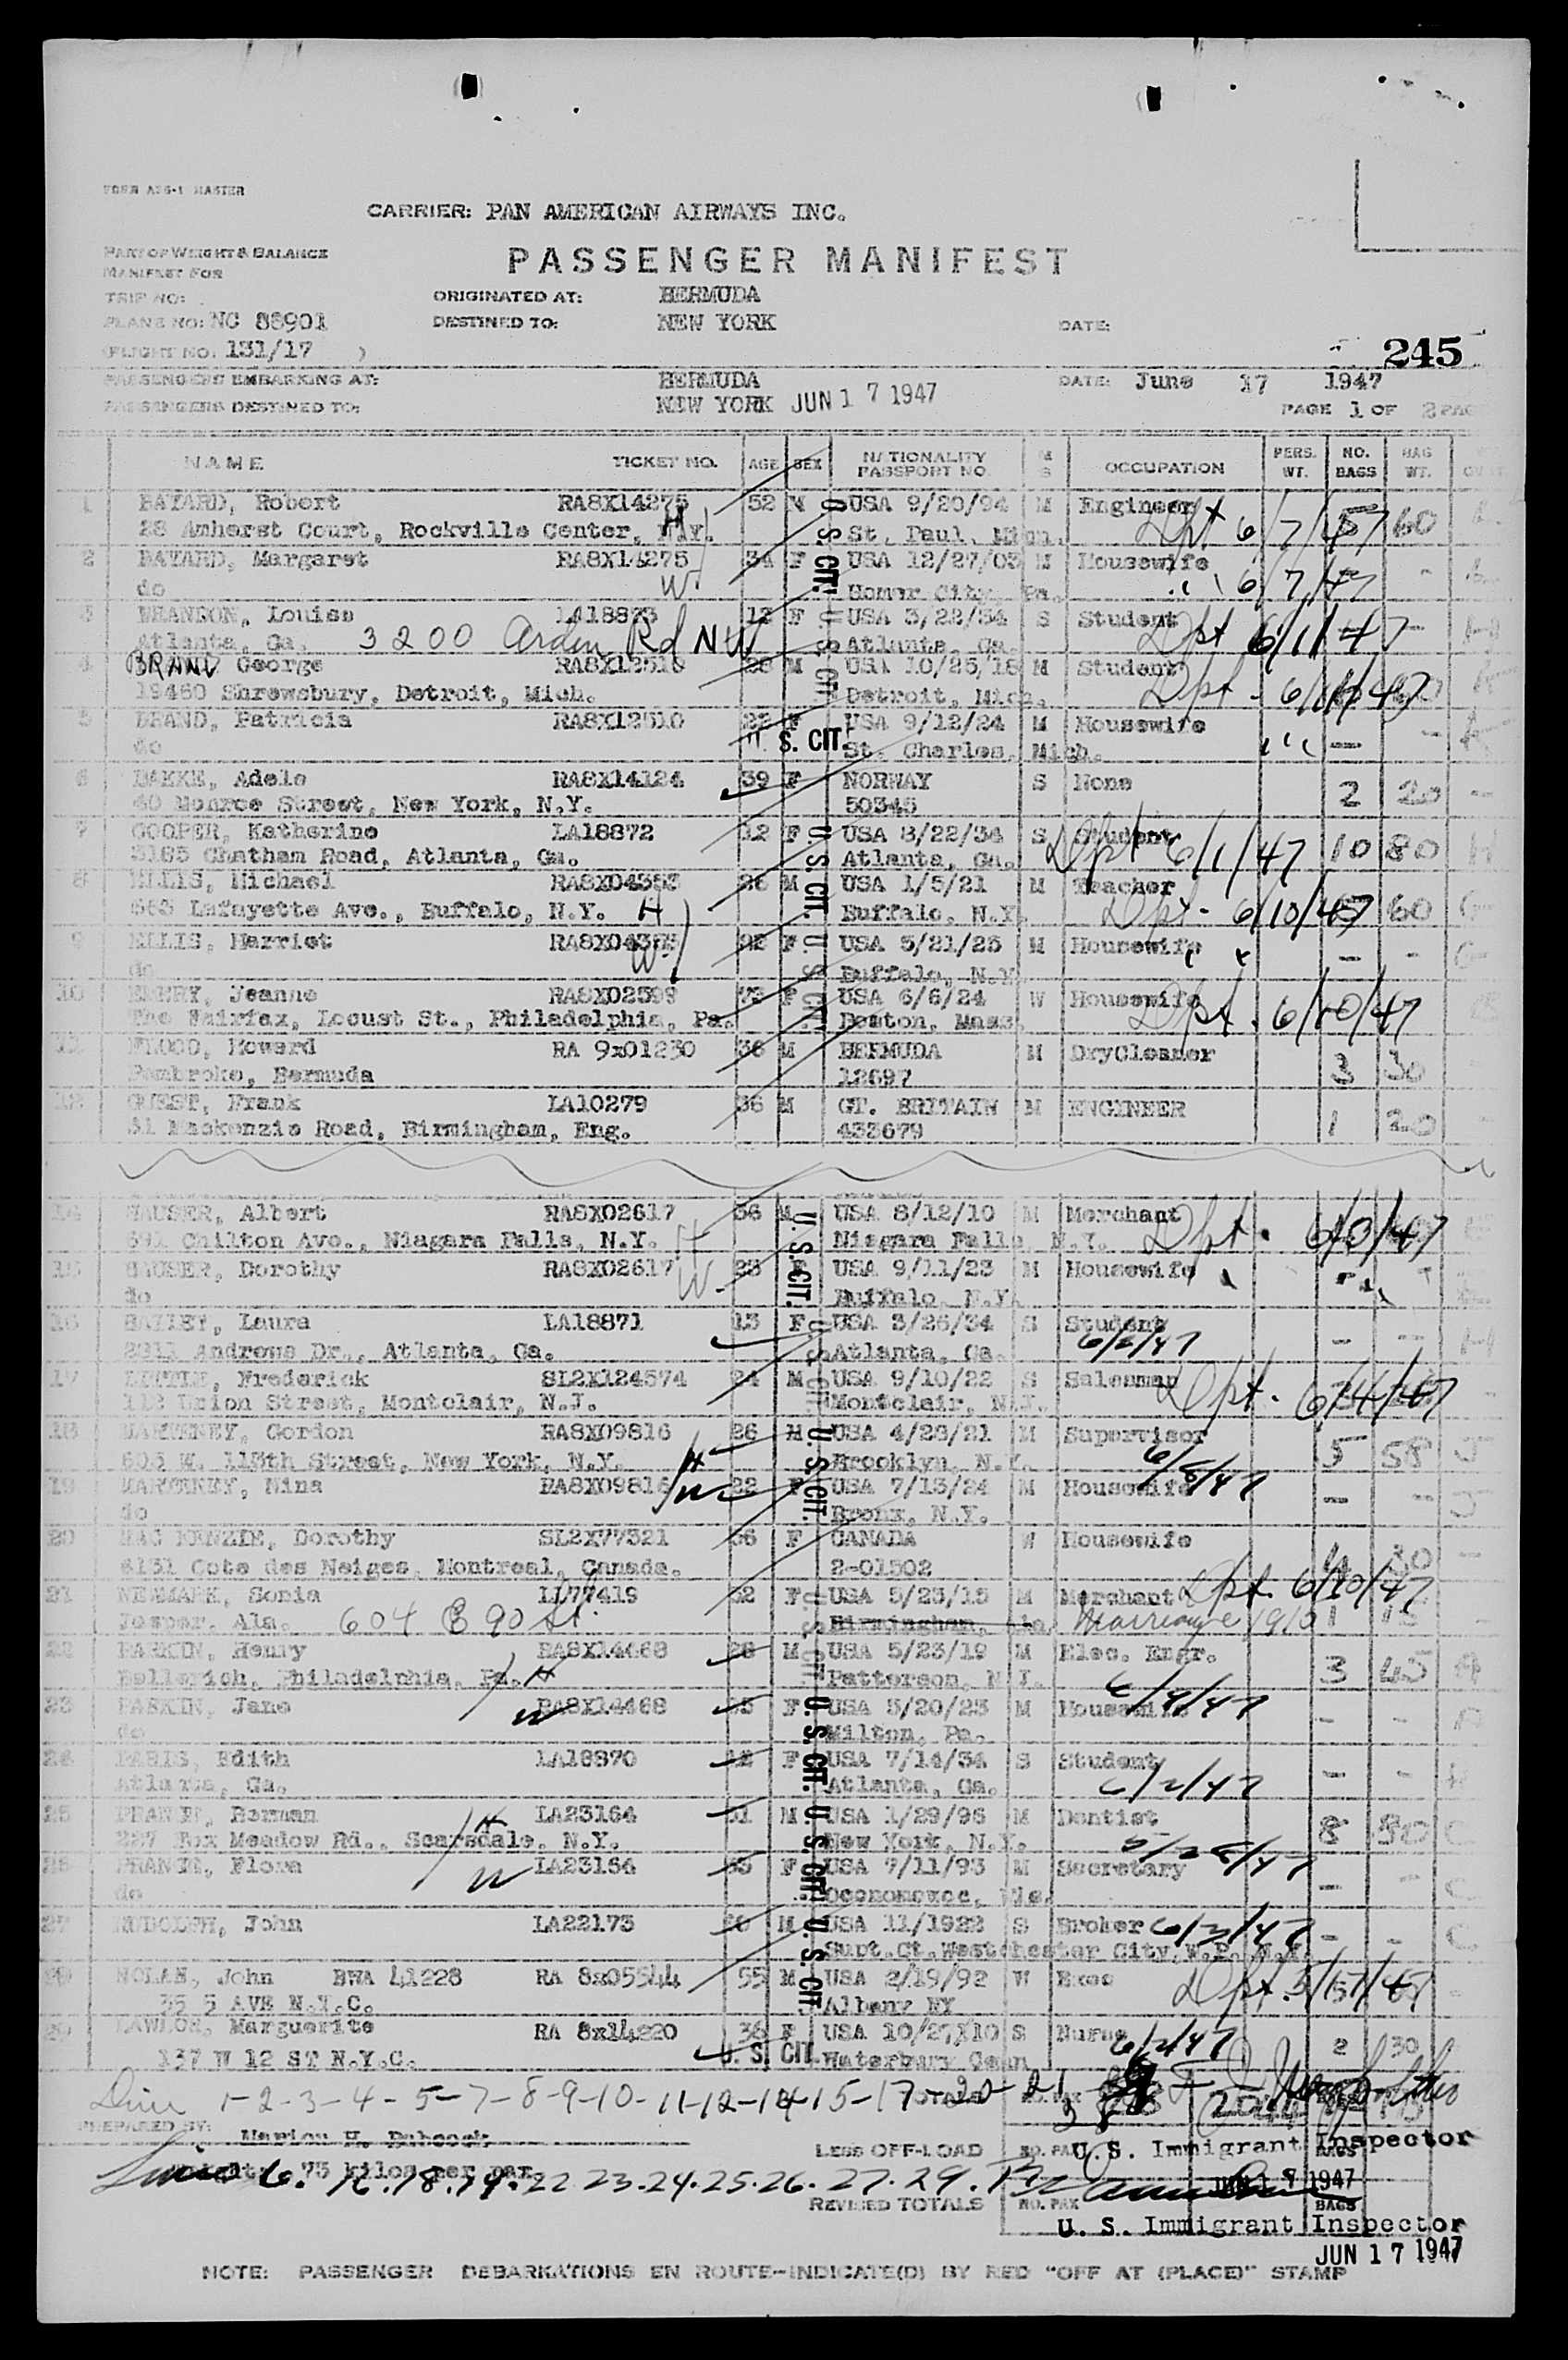 FORM ATS-1 MASTER
CARRIER: PAN AMERICAN AIRWAYS INC.
PART OF WEIGHT & BALANCE
MANIFEST FOR
PASSENGER MANIFEST
TRIP NO: ORIGINATED AT: BERMUDA
PLANE NO: NC 88901 DESTINED TO: NEW YORK DATE:
(FLIGHT NO. 131/17 ) 245
PASSENGERS EMBARKING AT: BERMUDA DATE: June 17 1947
PASSENGERS DESTINED TO: NEW YORK JUN 17 1947 PAGE 1 OF 2
NAME TICKET NO. AGE SEX NATIONALITY PASSPORT NO. M S OCCUPATION PERS. WT. NO. BAGS BAG WT.
1 BATARD, Robert RA8X14275 52 M USA 9/20/94 M Engineer
28 Amherst Court, Rockville Center, N.Y. H St. Paul, Dpt 6/7/47 60
2 BATARD, Margaret RA8X14275 F USA 12/27/03 M Housewife
do W. City, Pa. " " 6/7/47
3 BRANDON, Louise LA18873 12 F USA 3/22/34 S Student
Atlanta, Ga. 3200 Arden Rd NW Atlanta, Ga. Dpt 6/1/47
4 BRAND George 28 M USA 10/25/18 M Student
19460 Shrewsbury, Detroit, Mich. Detroit, Mich. Dpt. 6/11/47
5 BRAND, Patricia RA8X12510 22 F USA 9/12/24 M Housewife
do U. S. CIT. St. Charles, Mich.
6 BAKKE, Adele RA8X14124 39 F NORWAY S None
40 Monroe Street, New York, N.Y. 50345 2 20 -
7 COOPER, Katherine LA18872 12 F USA 8/22/34 S Student
3185 Chatham Road, Atlanta, Ga. Atlanta, Ga. Dpt 6/1/47 10 80 H
8 ELLIS, Michael RA8X04383 26 M USA 1/5/21 M Teacher
663 Lafayette Ave., Buffalo, N.Y. H Buffalo, N.Y. Dpt. 6/10/47 60 G
9 ELLIS, Harriet W. F USA 5/21/25 M Housewife
do Buffalo, N.Y. - - G
10 EMERY, Jeanne RA8X02598 F USA 6/6/24 W Housewife
The Fairfax, Locust St., Philadelphia, Pa. Boston, Mass. Dpt. 6/10/47
11 FLOOD, Howard RA 9x01230 36 M BERMUDA M DryCleaner
Pembroke, Bermuda 12697 3 30
12 GUEST, Frank LA10279 36 M GT. BRITAIN M ENGINEER
31 Mackenzie Road, Birmingham, Eng. 433679 1 20
14 HAUSER, Albert RA8X02617 36 M USA 8/12/10 M Merchant
Chilton Ave., Niagara Falls, N.Y. H Niagara Falls, N.Y. Dpt. 6/8/47
15 HAUSER, Dorothy RA8X02617 W. 23 F USA 9/11/23 M Housewife
do Buffalo, N.Y.
16 HAILEY, Laura LA18871 13 F USA 3/26/34 S Student
Andrews Dr., Atlanta, Ga. Atlanta, Ga. 6/2/47 - - H
17 LITTLE, Frederick SL2X124574 24 M USA 9/10/22 S Salesman
112 Union Street, Montclair, N.J. Montclair, N.J. Dpt. 6/4/47
18 Gordon RA8X09816 26 M USA 4/28/21 M Supervisor
605 W. 115th Street, New York, N.Y. H Brooklyn, N.Y. 6/8/47 5 58 J
19 Nina RA8X09816 W 22 F USA 7/13/24 M Housewife
do Bronx, N.Y. - - J
20 MAC KENZIE, Dorothy SL2X77321 F CANADA W Housewife
6151 Cote des Neiges, Montreal, Canada. 2-01502 30 -
21 NEWMARK, Sonia LL77419 F USA 5/23/15 M Merchant Dpt. 6/10/47
Jasper, Ala. 604 E 90 St. Birmingham, Ala. Marriage 1910
22 PARKIN, Henry RA8X14468 28 M USA 5/23/19 M Elec. Engr.
Philadelphia, Pa. H Patterson, N.J. 6/9/47 3 45 A
23 PARKIN, Jane W RA8X14468 F USA 5/20/23 M Housewife
do Milton, Pa. - - A
24 PARIS, Edith LA18870 12 F USA 7/14/34 S Student
Atlanta, Ga. Atlanta, Ga. 6/2/47 - - H
25 Herman H LA23164 51 M USA 1/29/96 M Dentist
Fox Meadow Rd., Scarsdale, N.Y. New York, N.Y. 5/28/47 8 90 C
26 W LA23164 F USA 7/11/93 M Secretary
do Oconomowoc, Wis. - - C
27 RUDOLPH, John LA22173 M USA 11/1922 S Broker 6/2/47 - - C
Supt.Ct.Westchester City, W.P. N.Y.
28 NOLAN, John BWA 41228 RA 8x05544 55 M USA 2/19/92 W Exec
35 5 AVE N.Y.C. Albany NY Dpt.
29 LAWLOR, Marguerite RA 8x14220 36 F USA 10/27/10 S Nurse
137 W 12 ST N.Y.C. U. S. CIT. Waterbury Conn 6/2/47 2 30
1-2-3-4-5-7-8-9-10-11-12-14-15-17-20-21
PREPARED BY: Marion H. Babcock
LESS OFF-LOAD NO. PAX U. S. Immigrant Inspector
75 kilos per pax
6. 16.18.19.22.23.24.25.26.27.29. JUN 17 1947
REVISED TOTALS NO. PAX BAGS
U. S. Immigrant Inspector
JUN 17 1947
NOTE: PASSENGER DEBARKATIONS EN ROUTE-INDICATE(D) BY RED "OFF AT (PLACE)" STAMP